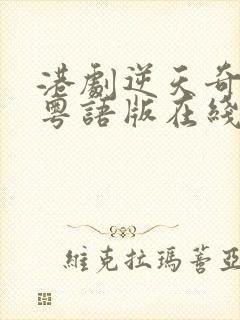 港劇逆天奇
粵語版在綫
維克拉瑪蓍亞